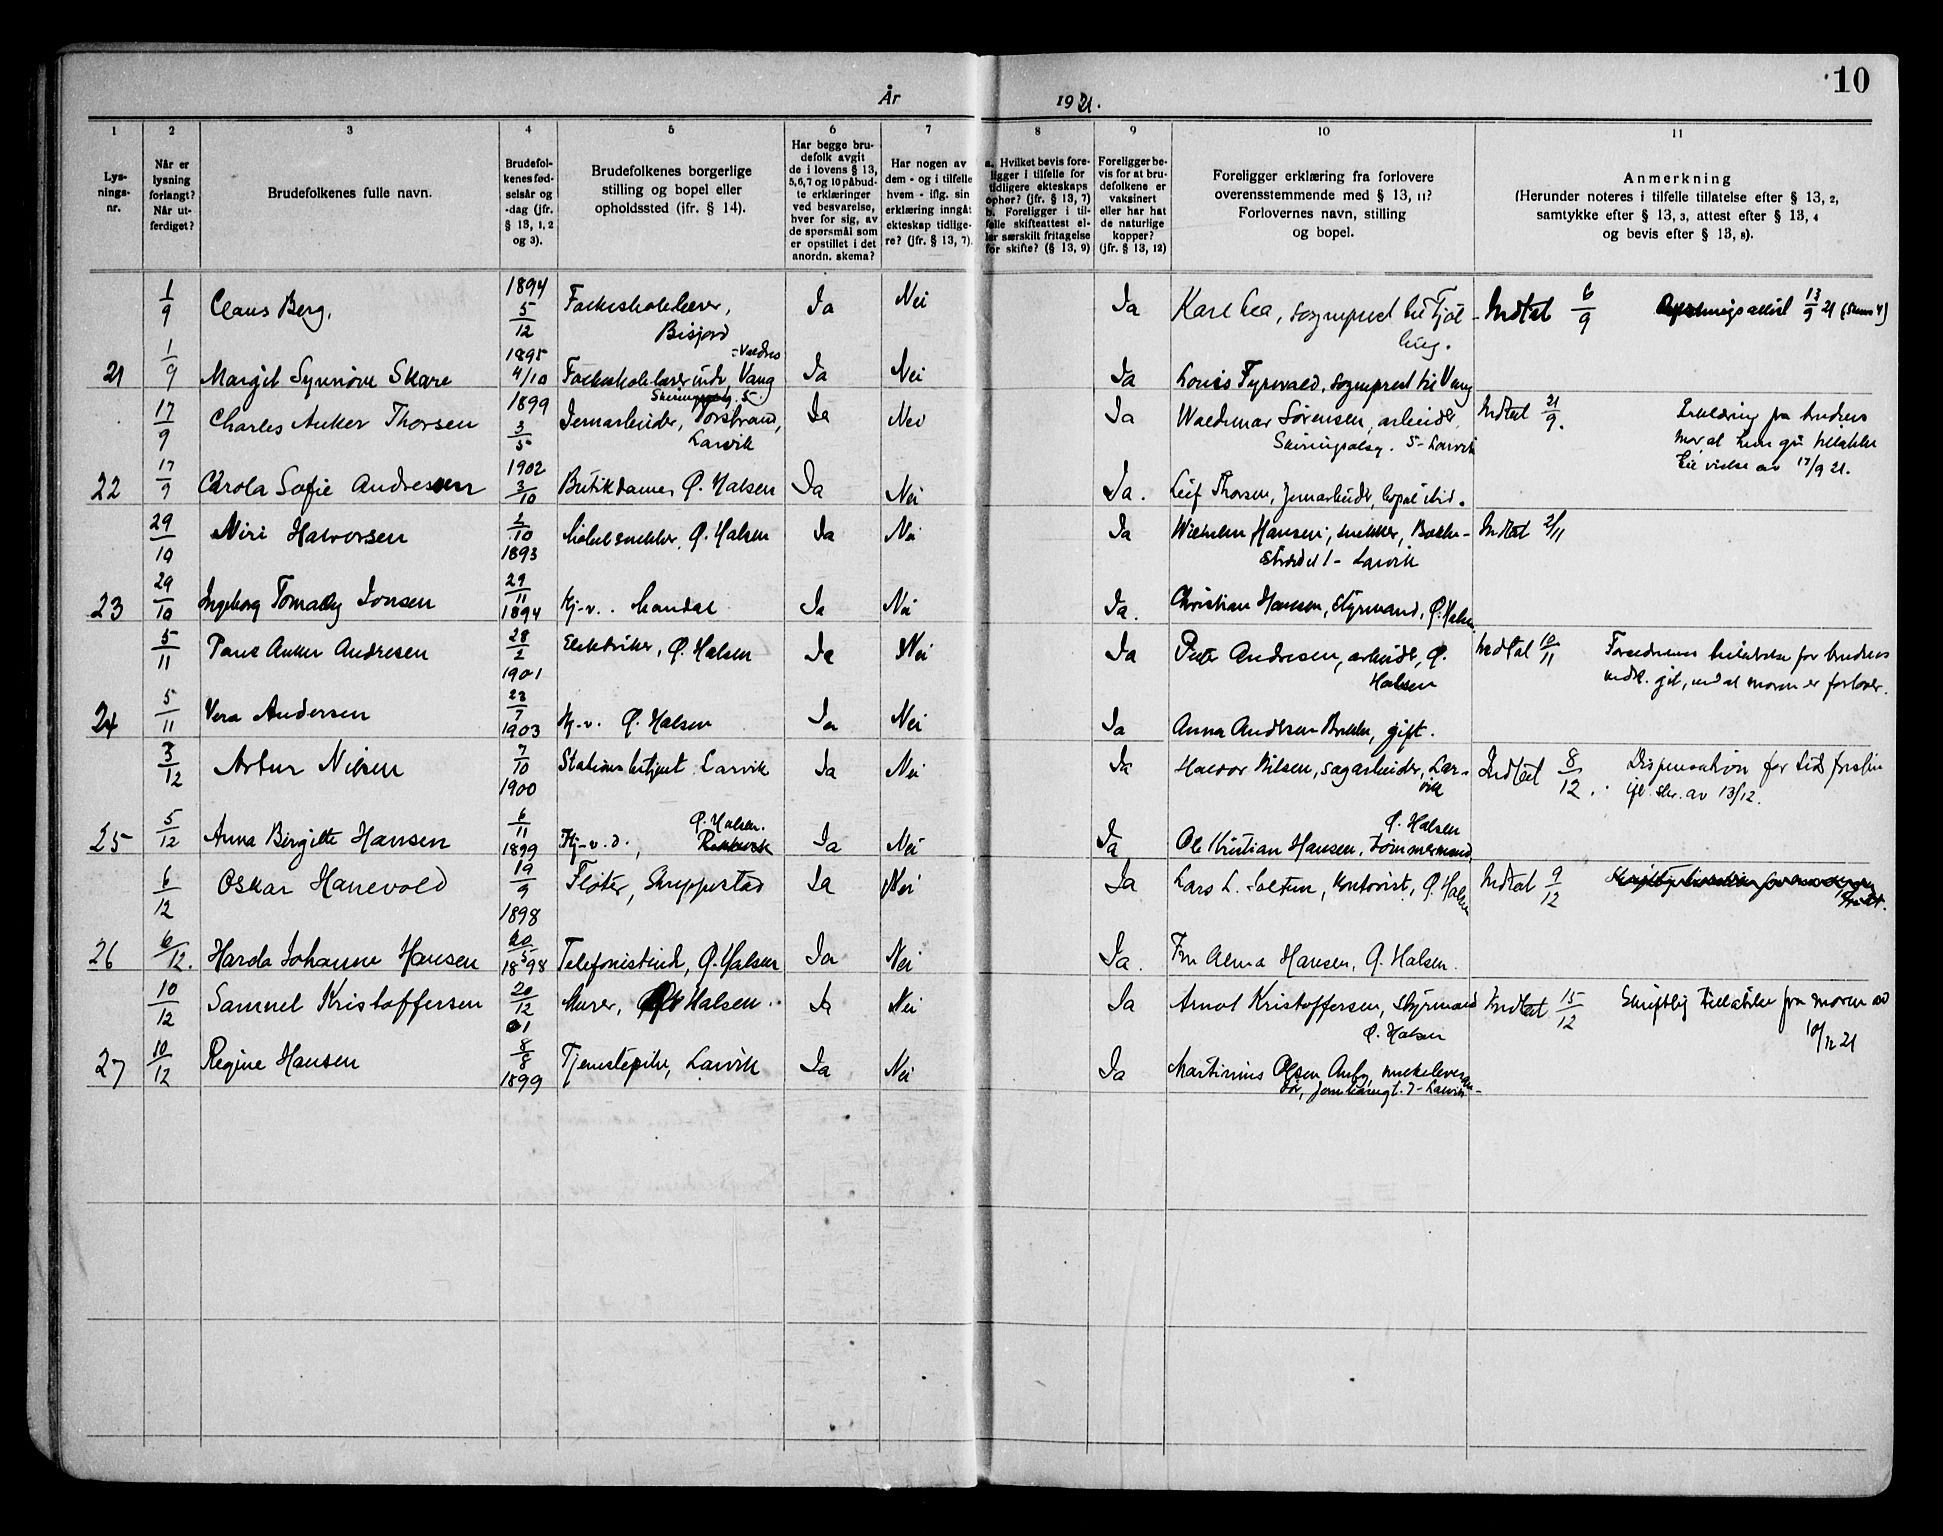 År 1921.
10
1 2 3 4 5 6 7 8 9 10 11
Lys-
nings-
nr.
Når er
lysning
forlangt?
Når ut-
ferdiget?
Brudefolkenes fulle navn.
Brudefol-
kenes fød-
selsår og
-dag (jfr.
§ 13, 1, 2
og 3).
Brudefolkenes borgerlige
stilling og bopel eller
opholdssted (ifr. § 14).
Har begge bru-
defolk avgit
de i lovens § 13,
5, 6, 7 og 10 påbud-
te erklæringer
ved besvarelse,
hver for sig, av
de spørsmål som
er opstillet i det
anordn. skema?
Har nogen av
dem - og i tilfelle
hvem - iflg. sin
erklæring inngåt
ekteskap tidlige-
re? (jfr. § 13, 7).
a. Hvilket bevis fore-
ligger i tilfelle for
tidligere ekteskaps
ophør? (jfr. § 13, 7)
b. Foreligger i til-
felle skifteattest el-
ler særskilt fritagelse
for skifte? (§ 13, 9)
Foreligger be-
vis for at bru-
defolkene er
vaksinert
eller har hat
de naturlige
kopper?
(jfr. § 13, 12)
Foreligger erklæring fra forlovere
overensstemmende med § 13, 11?
Forlovernes navn, stilling
og bopel.
Anmerkning
(Herunder noteres i tilfelle tillatelse efter § 13, 2,
samtykke efter § 13, 3, attest efter § 13, 4
og bevis efter § 13, 8).
1/9 Claus Berg, 1894 5/12 Folkeskolelærer, Ja Nei Ja Karl Lea, sogneprest til Tjøl- Indtat 6/9 13/9 21
Bisjord
ling.
21 1/9 Margit Synnøve Skare 1895 4/10 Folkeskolelærerinde, Vang Ja Nei Ja Louis Tyrwald, sogneprest til Vang
-Valdres
17/9 Charles Anker Thorsen 1899 3/5 Jernarbeider, Torstrand, Ja Nei Ja Waldemar Sørensen, arbeider, Indtat 21/9. Erklæring fra brudens
Larvik
Skiringsalsg. 5 - Larvik
mor at hun gir tillatelse
til vielse av 17/9 21.
22 17/9 Carola Sofie Andresen 1902 3/10 Butikdame, Ø. Halsen Ja Nei Ja. Leif Thorsen, Jernarbeider, bopæl ibid.
29/10 Niri Halvorsen 2/10 1893 Møbelsnekker, Ø. Halsen Ja Nei Ja Wilhelm Hansen, snekker, Bøkke- Indtat 2/11
strædet 1 - Larvik
23 29/10 Ingeborg Jonsen 29/11 1894 Hj-v. Mandal Ja Nei Ja. Christian Hansen, styrmand, Ø. Halsen.
5/11 Paul Anker Andresen 28/2 1901 Elektriker, Ø. Halsen Ja Nei Ja Peter Andresen, arbeider, Ø. Indtat 10/11 Forældrenes tillatelse for brudens
Halsen
vedk. git, ved at moren er forlover.
24 5/11 Vera Andersen 23/7 1903 Hj-v. Ø. Halsen Ja Nei Ja Anna Andersen Brekke, gift.
3/12 Artur Nilsen 7/10 1900 Stationsbetjent Larvik Ja Nei Ja Halvor Nilsen, sagarbeider, Lar- Indtat 8/12. Dispensation for
vik
skr. av 13/12.
25 5/12 Anna Birgitte Hansen 6/11 1899 Hj-v.d., Ø. Halsen. Ja Nei Ja Ole Kristian Hansen, Tømmermand,
Ø. Halsen
6/12 Oskar Hanevold 19/9 1898 Fløter, Skreppestad Ja Nei Ja Lars L. Soltun, kontorist, Ø. Halsen Indtat 9/12
26 6/12. Harda Johanne Hansen 20/5 1898 Telefonistinde, Ø. Halsen Ja Nei Ja. Fru Alma Hansen, Ø. Halsen.
10/12 Samuel Kristoffersen 20/12 01 Murer, Ø. Halsen. Ja Nei Ja Arnol Kristoffersen, Styrmand Indtat 15/12 Skriftlig tillatelse fra moren av
Ø. Halsen
10/12 21
27 10/12 Regine Hansen 8/8 1899 Tjenestepike, Larvik Ja Nei Ja Martinius Olsen Auby melkeleveran-
dør, 7 - Larvik